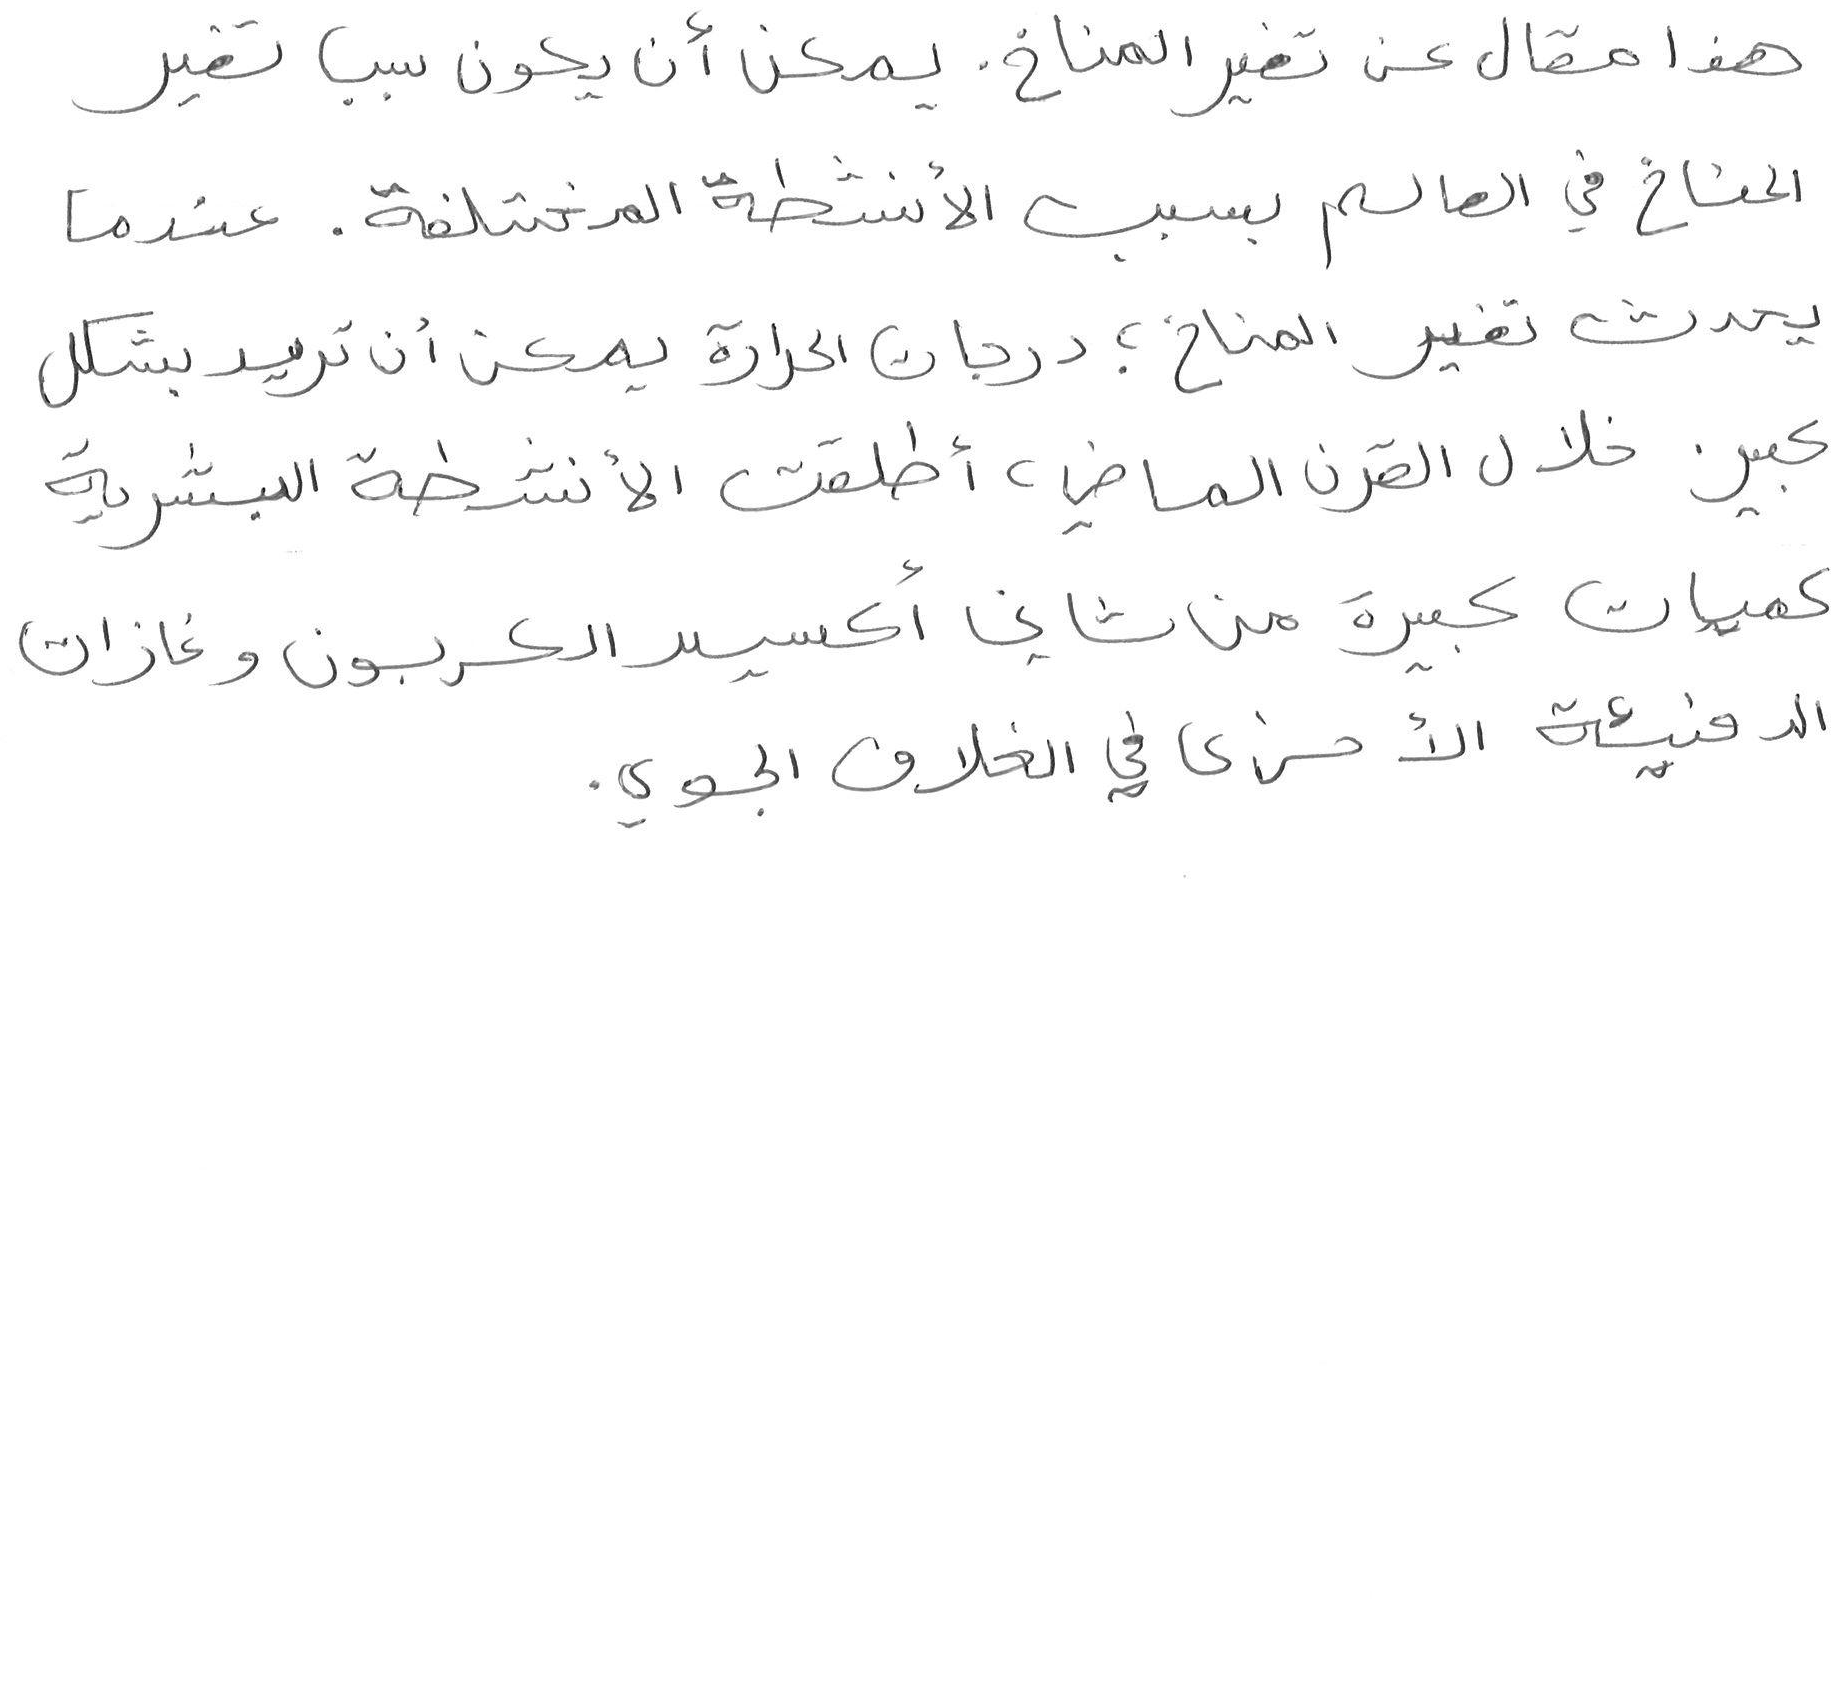 هذا مقال عن تغير المناخ. يمكن أن يكون سبب تغير
المناخ في العالم بسبب الأنشطة المختلفة. عندما
يحدث تغير المناخ؛ درجات الحرارة يمكن أن تزيد بشكل
كبير. خلال القرن الماضي، أطلقت الأنشطة البشرية
كميات كبيرة من ثاني أكسيد الكربون وغازات
الدفيئة الأخرى في الغلاف الجوي.